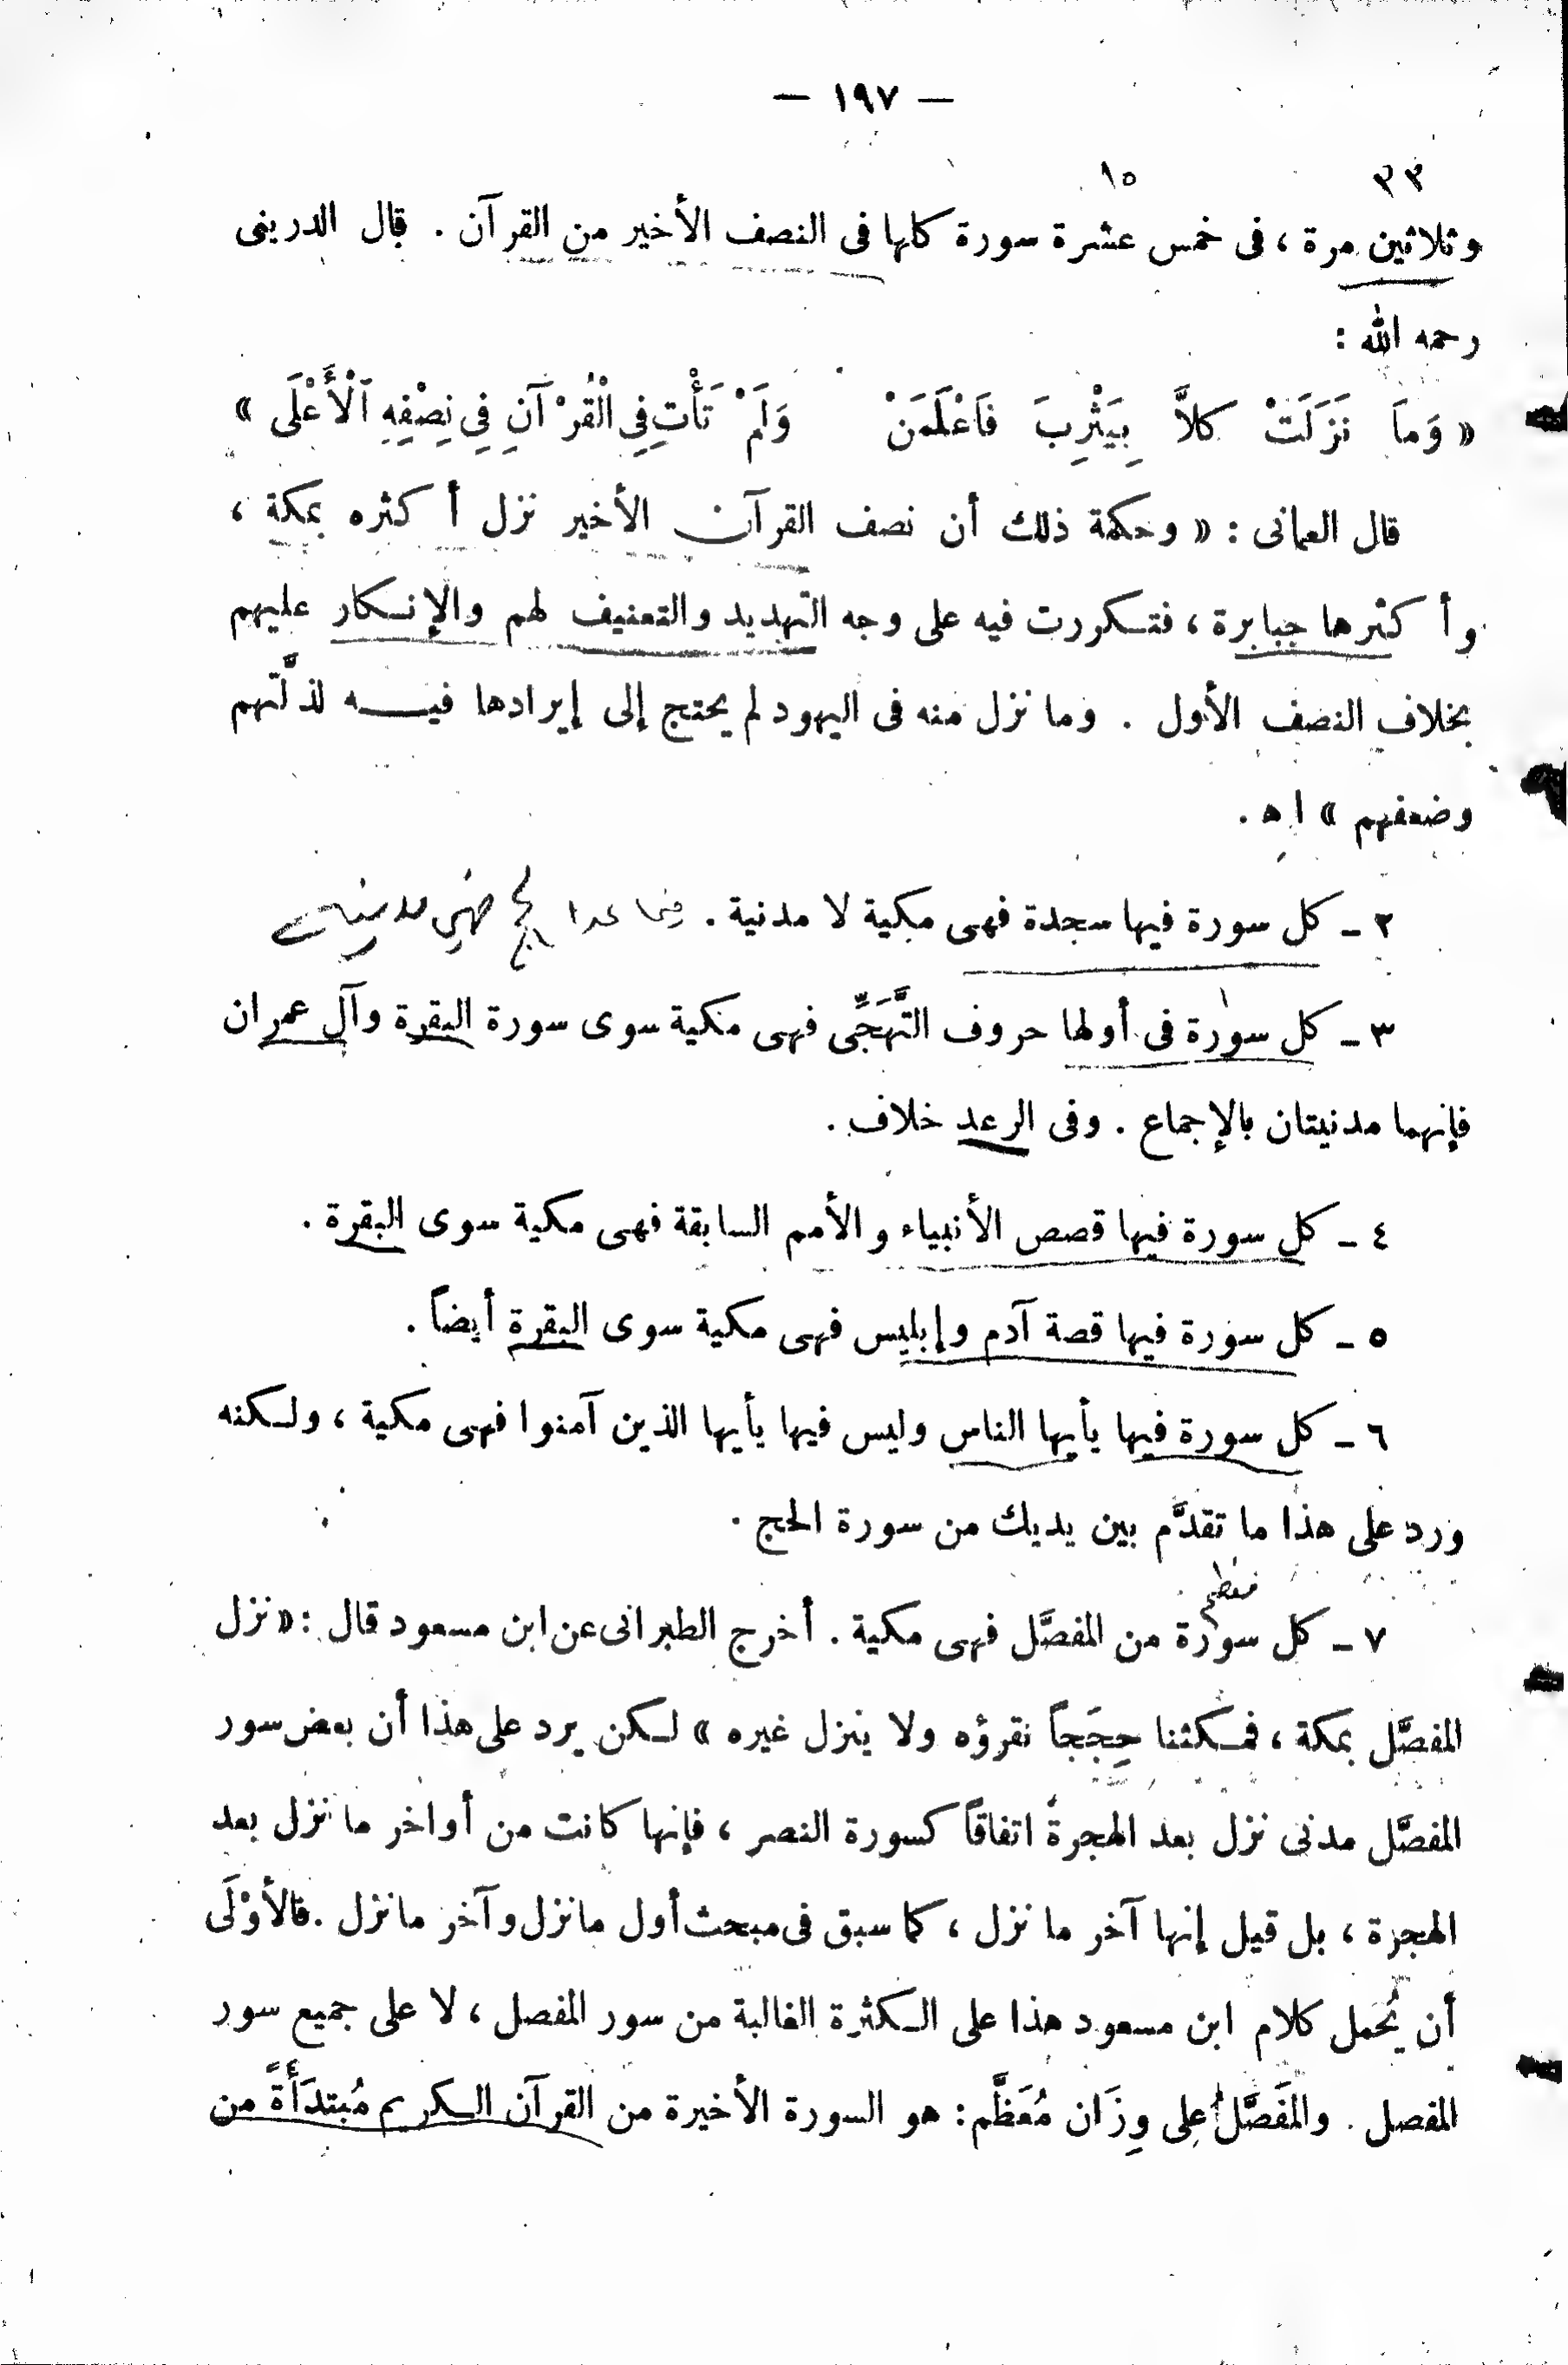 — ١٩٧ —
٣٣ ١٥
وثلاثين مرة ، فى خمس عشرة سورة كلها فى النصف الأخير من القرآن . قال الدرينى
رحمه الله :
« وَمَا نَزَلَتْ كلاَّ بِيَثْرِبَ فَاعْلَمَنْ وَلَمْ تَأْتِ فِي الْقُرْآنِ فِي نِصْفِهِ ٱلْأَعْلَى »
قال العمانى : « وحكمة ذلك أن نصف القرآن الأخير نزل أكثره بمكة ،
وأكثرها جبابرة ، فتكررت فيه على وجه التهديد والتعنيف لهم والإنكار عليهم
بخلاف النصف الأول . وما نزل منه فى اليهود لم يحتج إلى إيرادها فيه لذلَّتهم
وضعفهم » اه .
٢ ـ كل سورة فيها سجدة فهى مكية لا مدنية . فيما عدا الحج فهي مدنية
٣ ـ كل سورة فى أولها حروف التَّهَجِّى فهى مكية سوى سورة البقرة وآل عمران
فإنهما مدنيتان بالإجماع . وفى الرعد خلاف .
٤ ـ كل سورة فيها قصص الأنبياء والأمم السابقة فهى مكية سوى البقرة .
٥ ـ كل سورة فيها قصة آدم وإبليس فهى مكية سوى البقرة أيضاً .
٦ ـ كل سورة فيها يأيها الناس وليس فيها يأيها الذين آمنوا فهى مكية ، ولكنه
ورد على هذا ما تقدَّم بين يديك من سورة الحج .
معظم
٧ ـ كل سورة من المفصَّل فهى مكية . أخرج الطبرانى عن ابن مسعود قال : « نزل
المفصَّل بمكة ، فمكثنا حِجَجاً نقرؤه ولا ينزل غيره » لكن يرد على هذا أن بعض سور
المفصَّل مدنى نزل بعد الهجرة اتفاقاً كسورة النصر ، فإنها كانت من أواخر ما نزل بعد
الهجرة ، بل قيل إنها آخر ما نزل ، كما سبق فى مبحث أول ما نزل وآخر ما نزل . فالأوْلَى
أن يُحمل كلام ابن مسعود هذا على الكثرة الغالبة من سور المفصل ، لا على جميع سور
المفصل . والمُفَصَّل على وِزَان مُعَظَّم : هو السورة الأخيرة من القرآن الكريم مُبتدَأَةً من